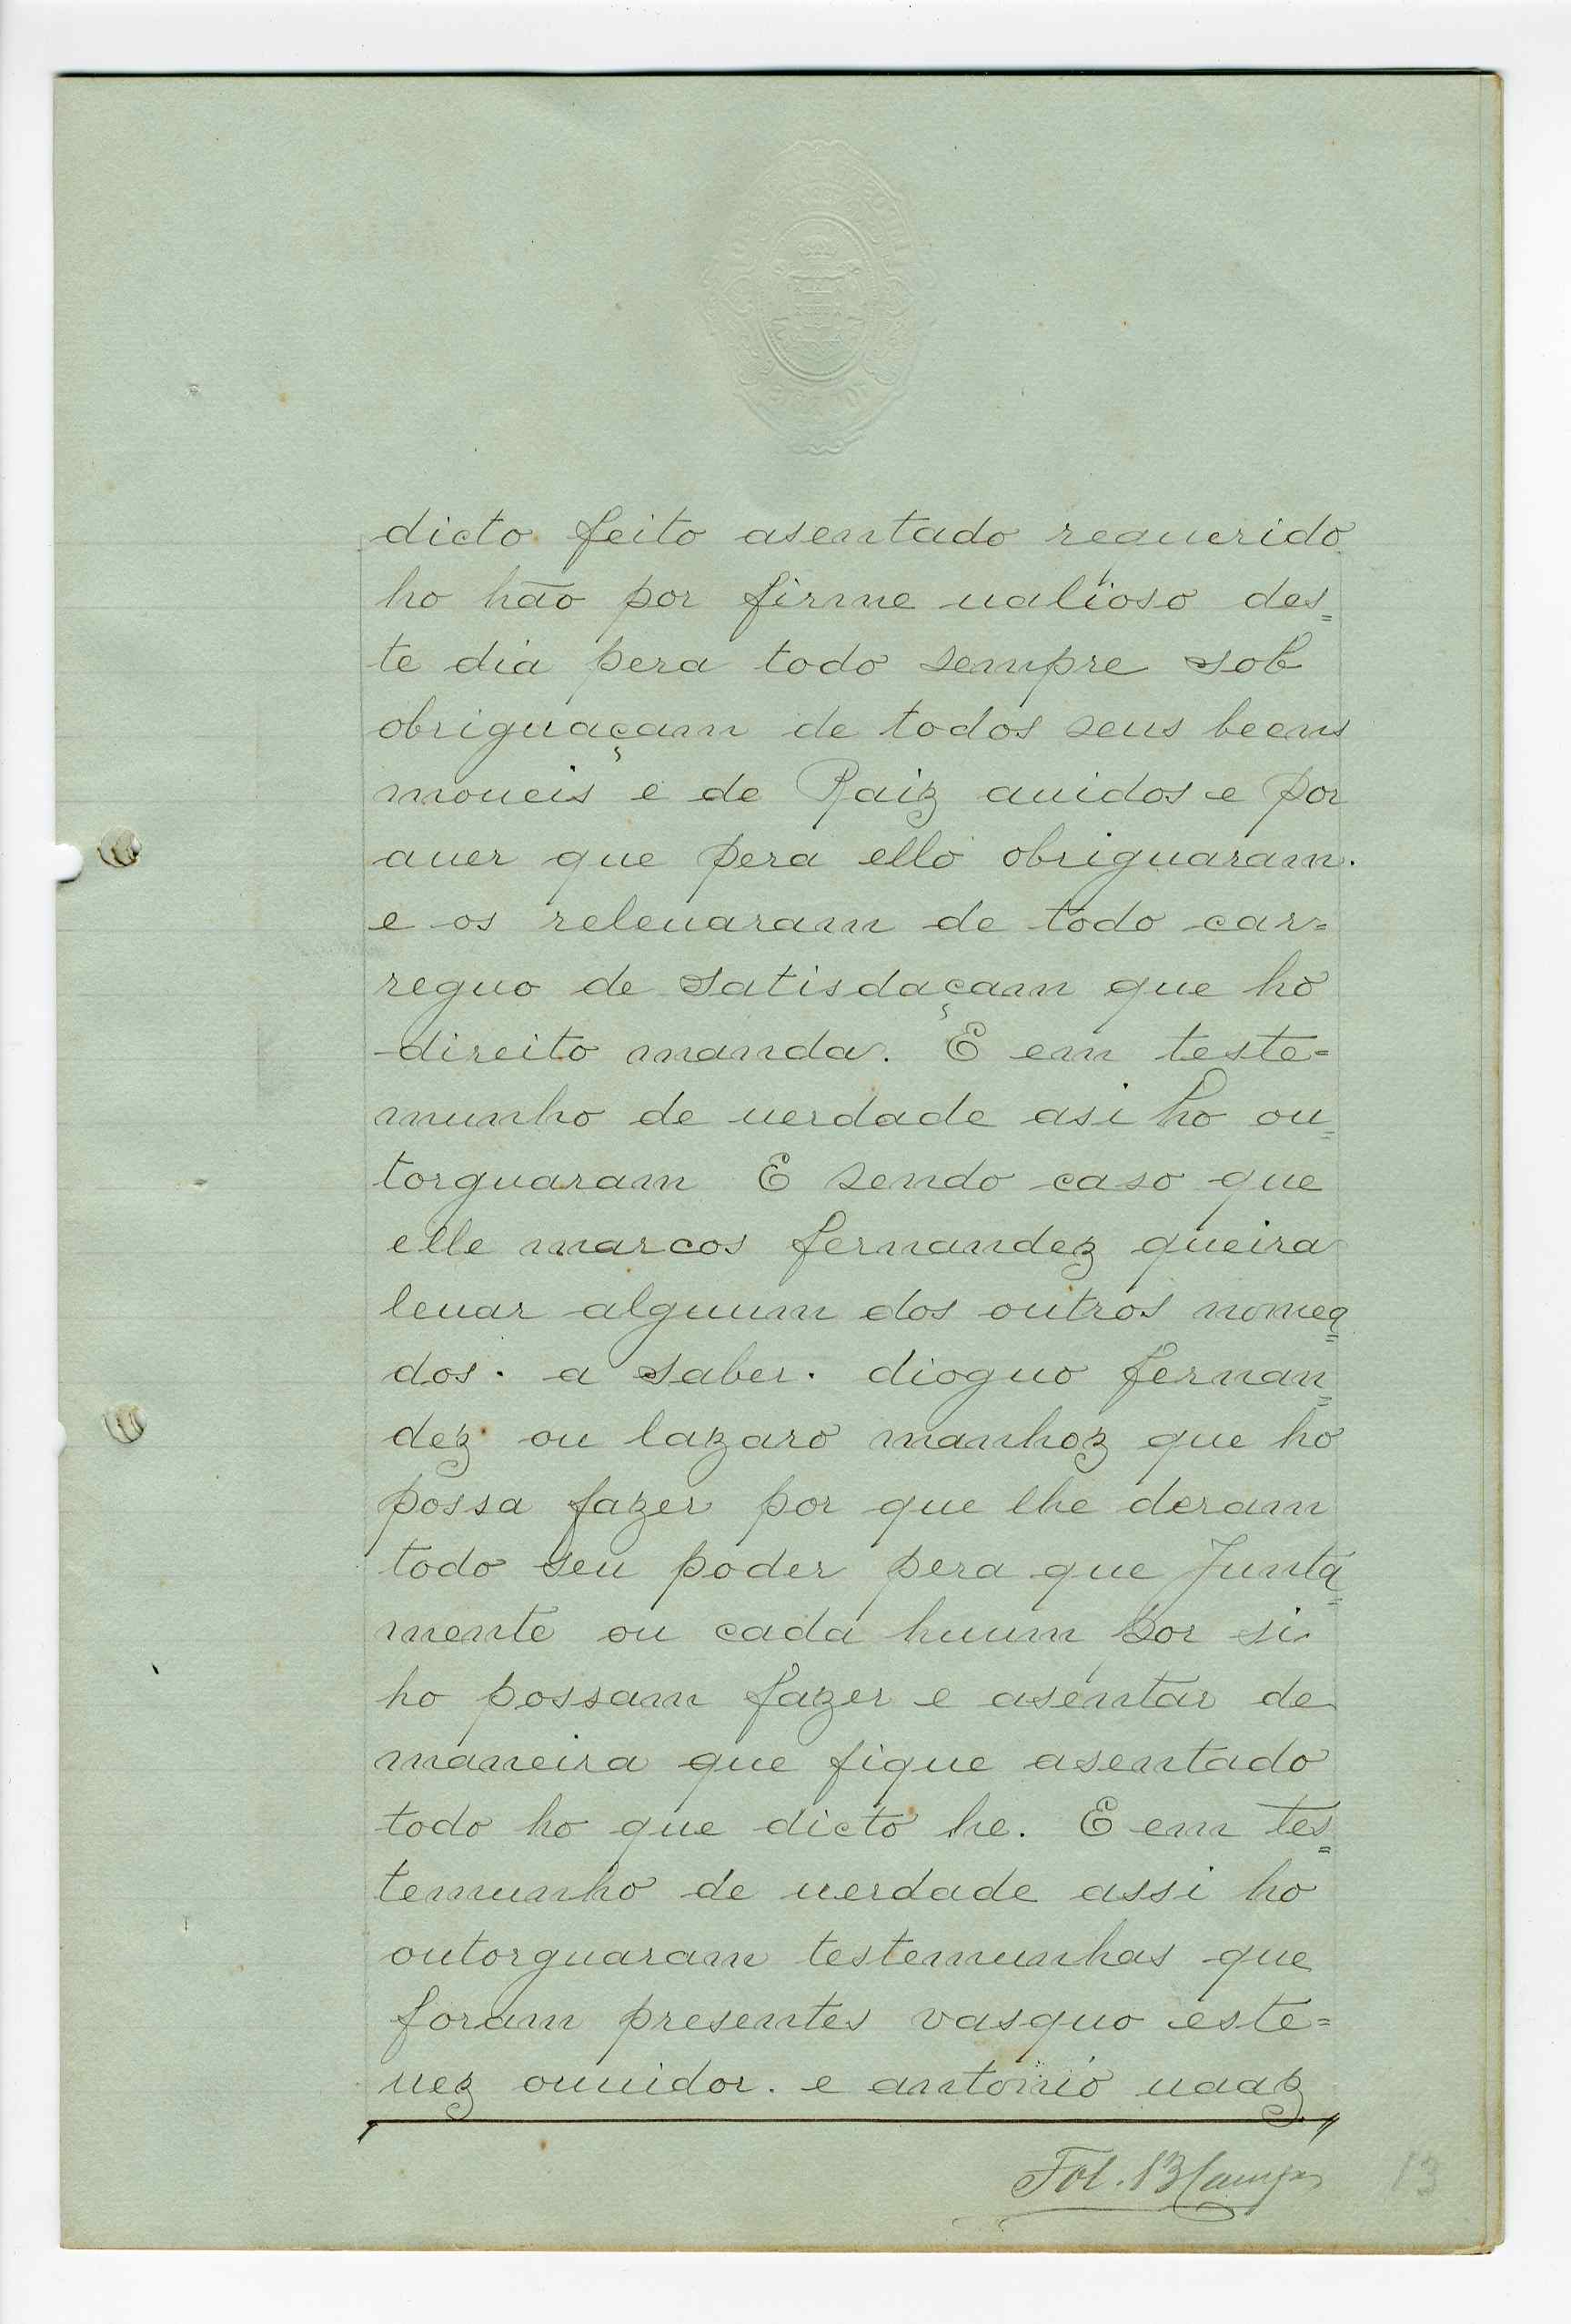 dicto feito asentado requerido
ho hão por firme ualioso des=
te dia pera todo sempre sob
obriguaçam de todos seus beens
moueis e de Raiz auidos e por
auer que pera ello obriguaram.
e os releuaram de todo car=
reguo de satisdaçam que ho
direito manda. E em teste=
munho de uerdade asi ho ou=
torguaram E sendo caso que
elle marcos fernandez queira
leuar alguum dos outros nomea=
dos. a saber. dioguo fernan=
dez ou lazaro manhoz que ho
possa fazer por que lhe deram
todo seu poder pera que Junta=
mente ou cada huum por si
ho possam fazer e asentar de
maneira que fique asentado
todo ho que dicto he. E em tes=
temunho de uerdade assi ho
outorguaram testemunhas que
foram presentes vasquo este=
uez ouuidor. e antonio uaaz
Fol. 13
13